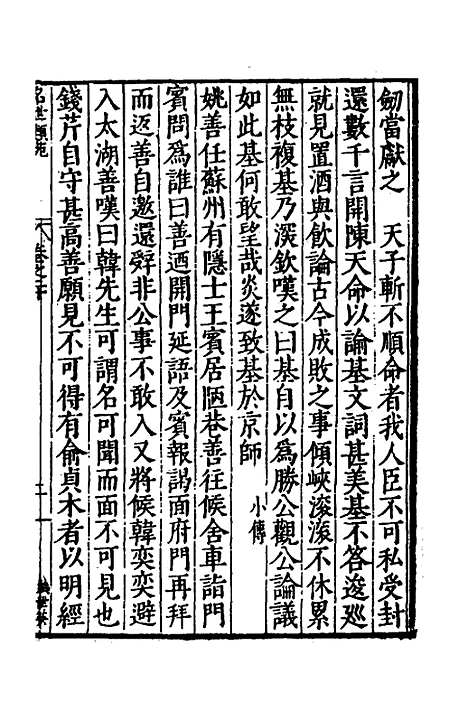 劒當獻之　天子斬不順命者我人臣不可私受封
還數千言開陳天命以諭基文詞甚美基不答逡巡
就見置酒與飲論古今成敗之事傾峽滚滚不休累
無枝複基乃深欽嘆之曰基自以為勝公觀公論議
如此基何敢望哉炎遂致基於京師　小傳
姚善任蘇州有隱士王賓居陋巷善往候舍車詣門
賓問為誰曰善迺開門延語及賓報謁面府門再拜
而返善自邀還辤非公事不敢入又將候韓奕奕避
入太湖善嘆曰韓先生可謂名可聞而面不可見也
錢芹自守甚高善願見不可得有俞貞木者以明經
名世類苑